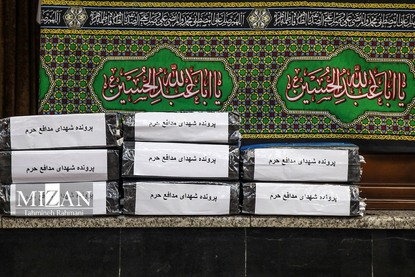 یا اباعبدالله الحسین
یا اباعبدالله الحسین
پرونده شهدای مدافع حرم
پرونده شهدای مدافع حرم
پرونده شهدای مدافع حرم
پرونده شهدای مدافع حرم
پرونده شهدای مدافع حرم
پرونده شهدای مدافع حرم
پرونده شهدای مدافع حرم
پرونده شهدای مدافع حرم
MIZAN
Tahmineh Rahmani